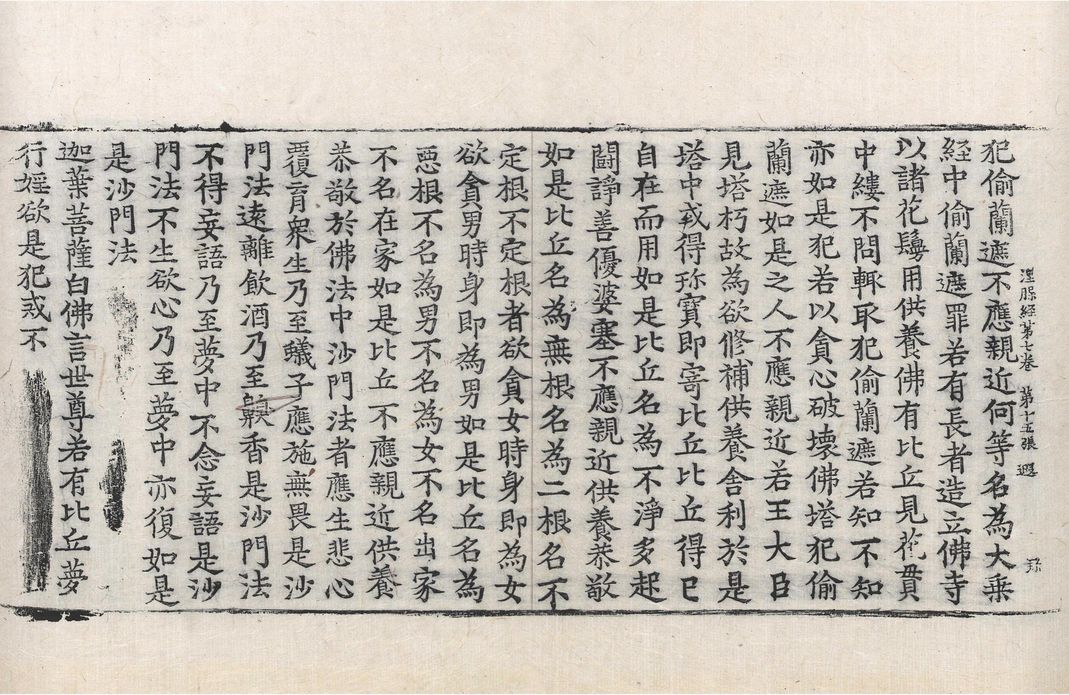 涅脲経第七卷　第十五張　遐
犯偷蘭遮不應親近何等名為大乗
経中偷蘭遮罪若有長者造立佛寺
以諸花鬘用供養佛有比丘見花貫
中縷不問輙取犯偷蘭遮若知不知
亦如是犯若以貪心破壊佛塔犯偷
蘭遮如是之人不應親近若王大臣
見塔朽故為欲修補供養舎利於是
塔中或得珎寳即寄比丘比丘得已
自在而用如是比丘名為不淨多起
闘諍善優婆塞不應親近供養恭敬
如是比丘名為無根名為二根名不
定根不定根者欲貪女時身即為女
欲貪男時身即為男如是比丘名為
悪根不名為男不名為女不名出家
不名在家如是比丘不應親近供養
恭敬於佛法中沙門法者應生悲心
覆育衆生乃至蟻子應施無畏是沙
門法遠離飲酒乃至䶗香是沙門法
不得妄語乃至夢中不念妄語是沙
門法不生欲心乃至夢中亦復如是
是沙門法
迦葉菩薩白佛言世尊若有比丘夢
行婬欲是犯戒不